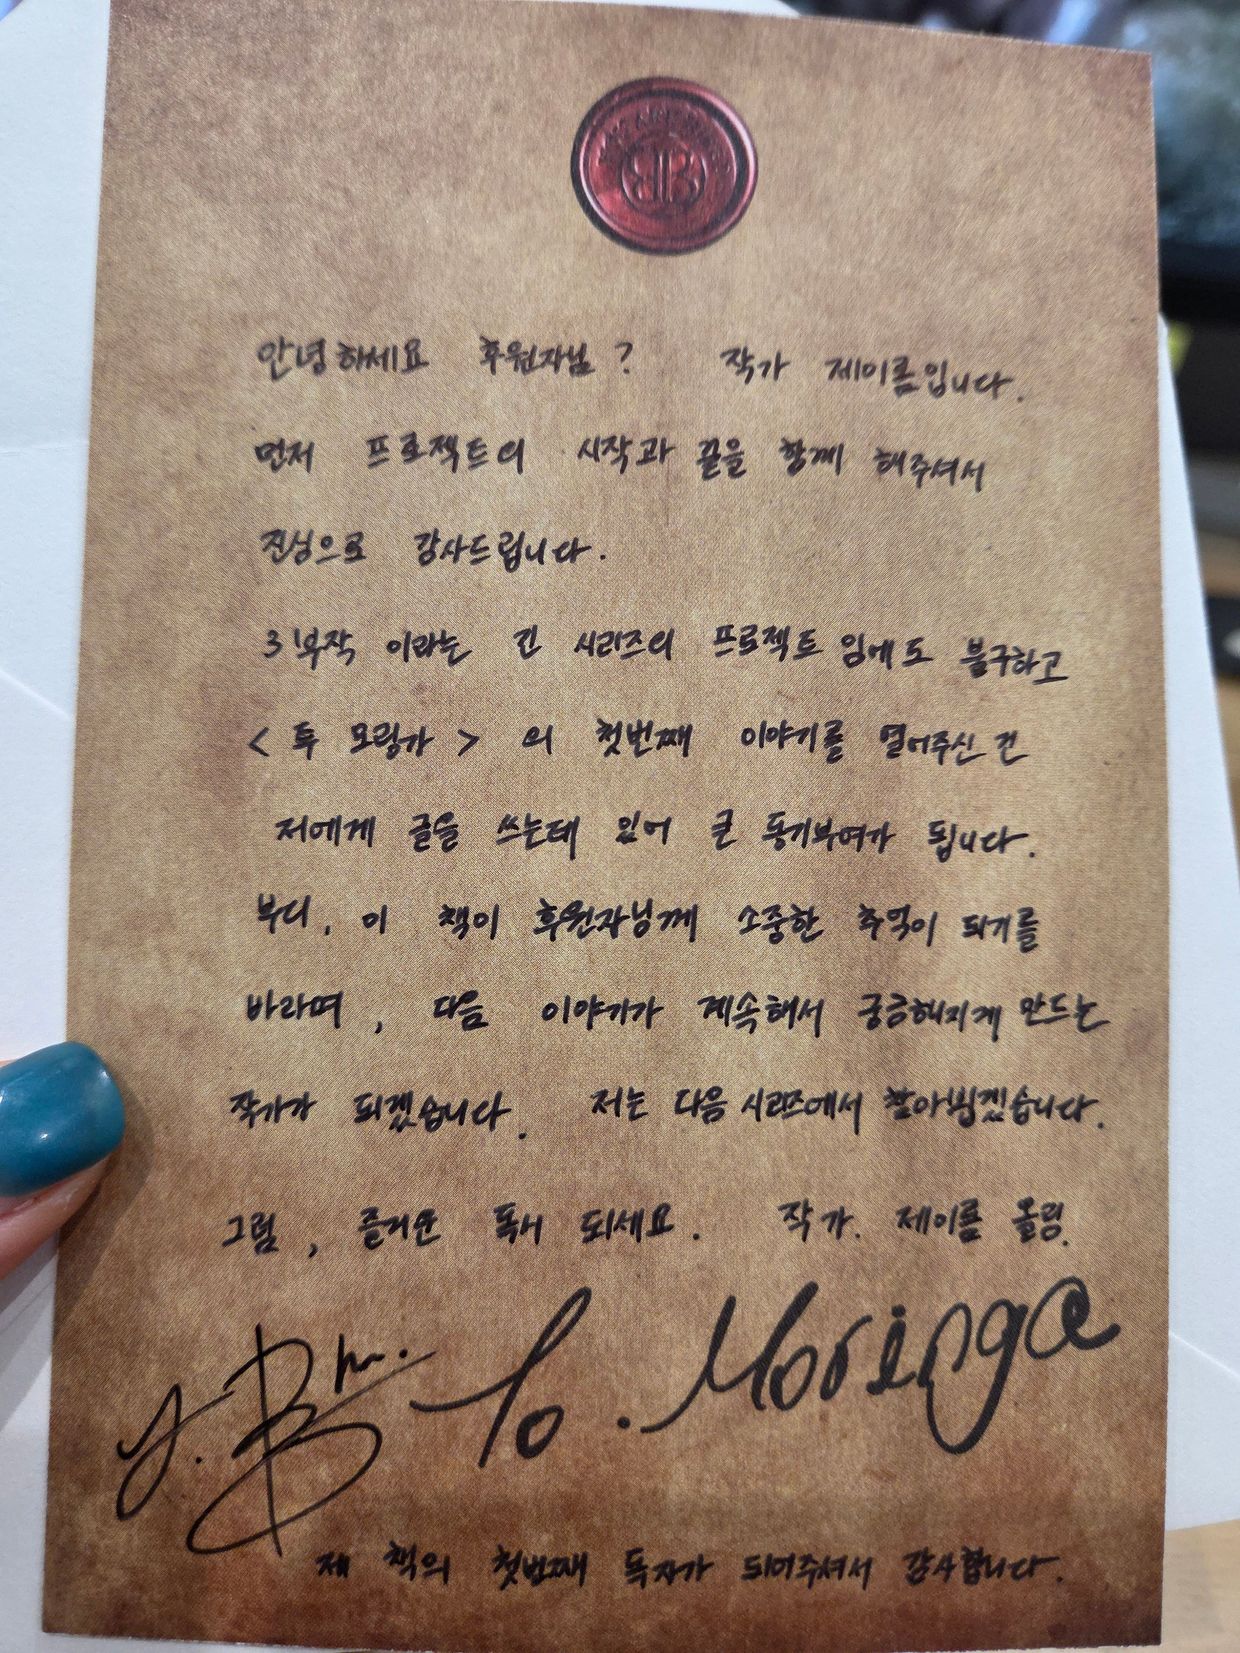 안녕하세요 후원자님? 작가 제이름입니다.
먼저 프로젝트의 시작과 끝을 함께 해주셔서
진심으로 감사드립니다.
3부작 이라는 긴 시리즈의 프로젝트 임에도 불구하고
< 투 모링가 > 의 첫번째 이야기를 열어주신 건
저에게 글을 쓰는데 있어 큰 동기부여가 됩니다.
부디, 이 책이 후원자님께 소중한 추억이 되기를
바라며, 다음 이야기가 계속해서 궁금해지게 만드는
작가가 되겠습니다. 저는 다음 시리즈에서 찾아뵙겠습니다.
그럼, 즐거운 독서 되세요. 작가. 제이름 올림.
To. Moringa
제 책의 첫번째 독자가 되어주셔서 감사합니다.